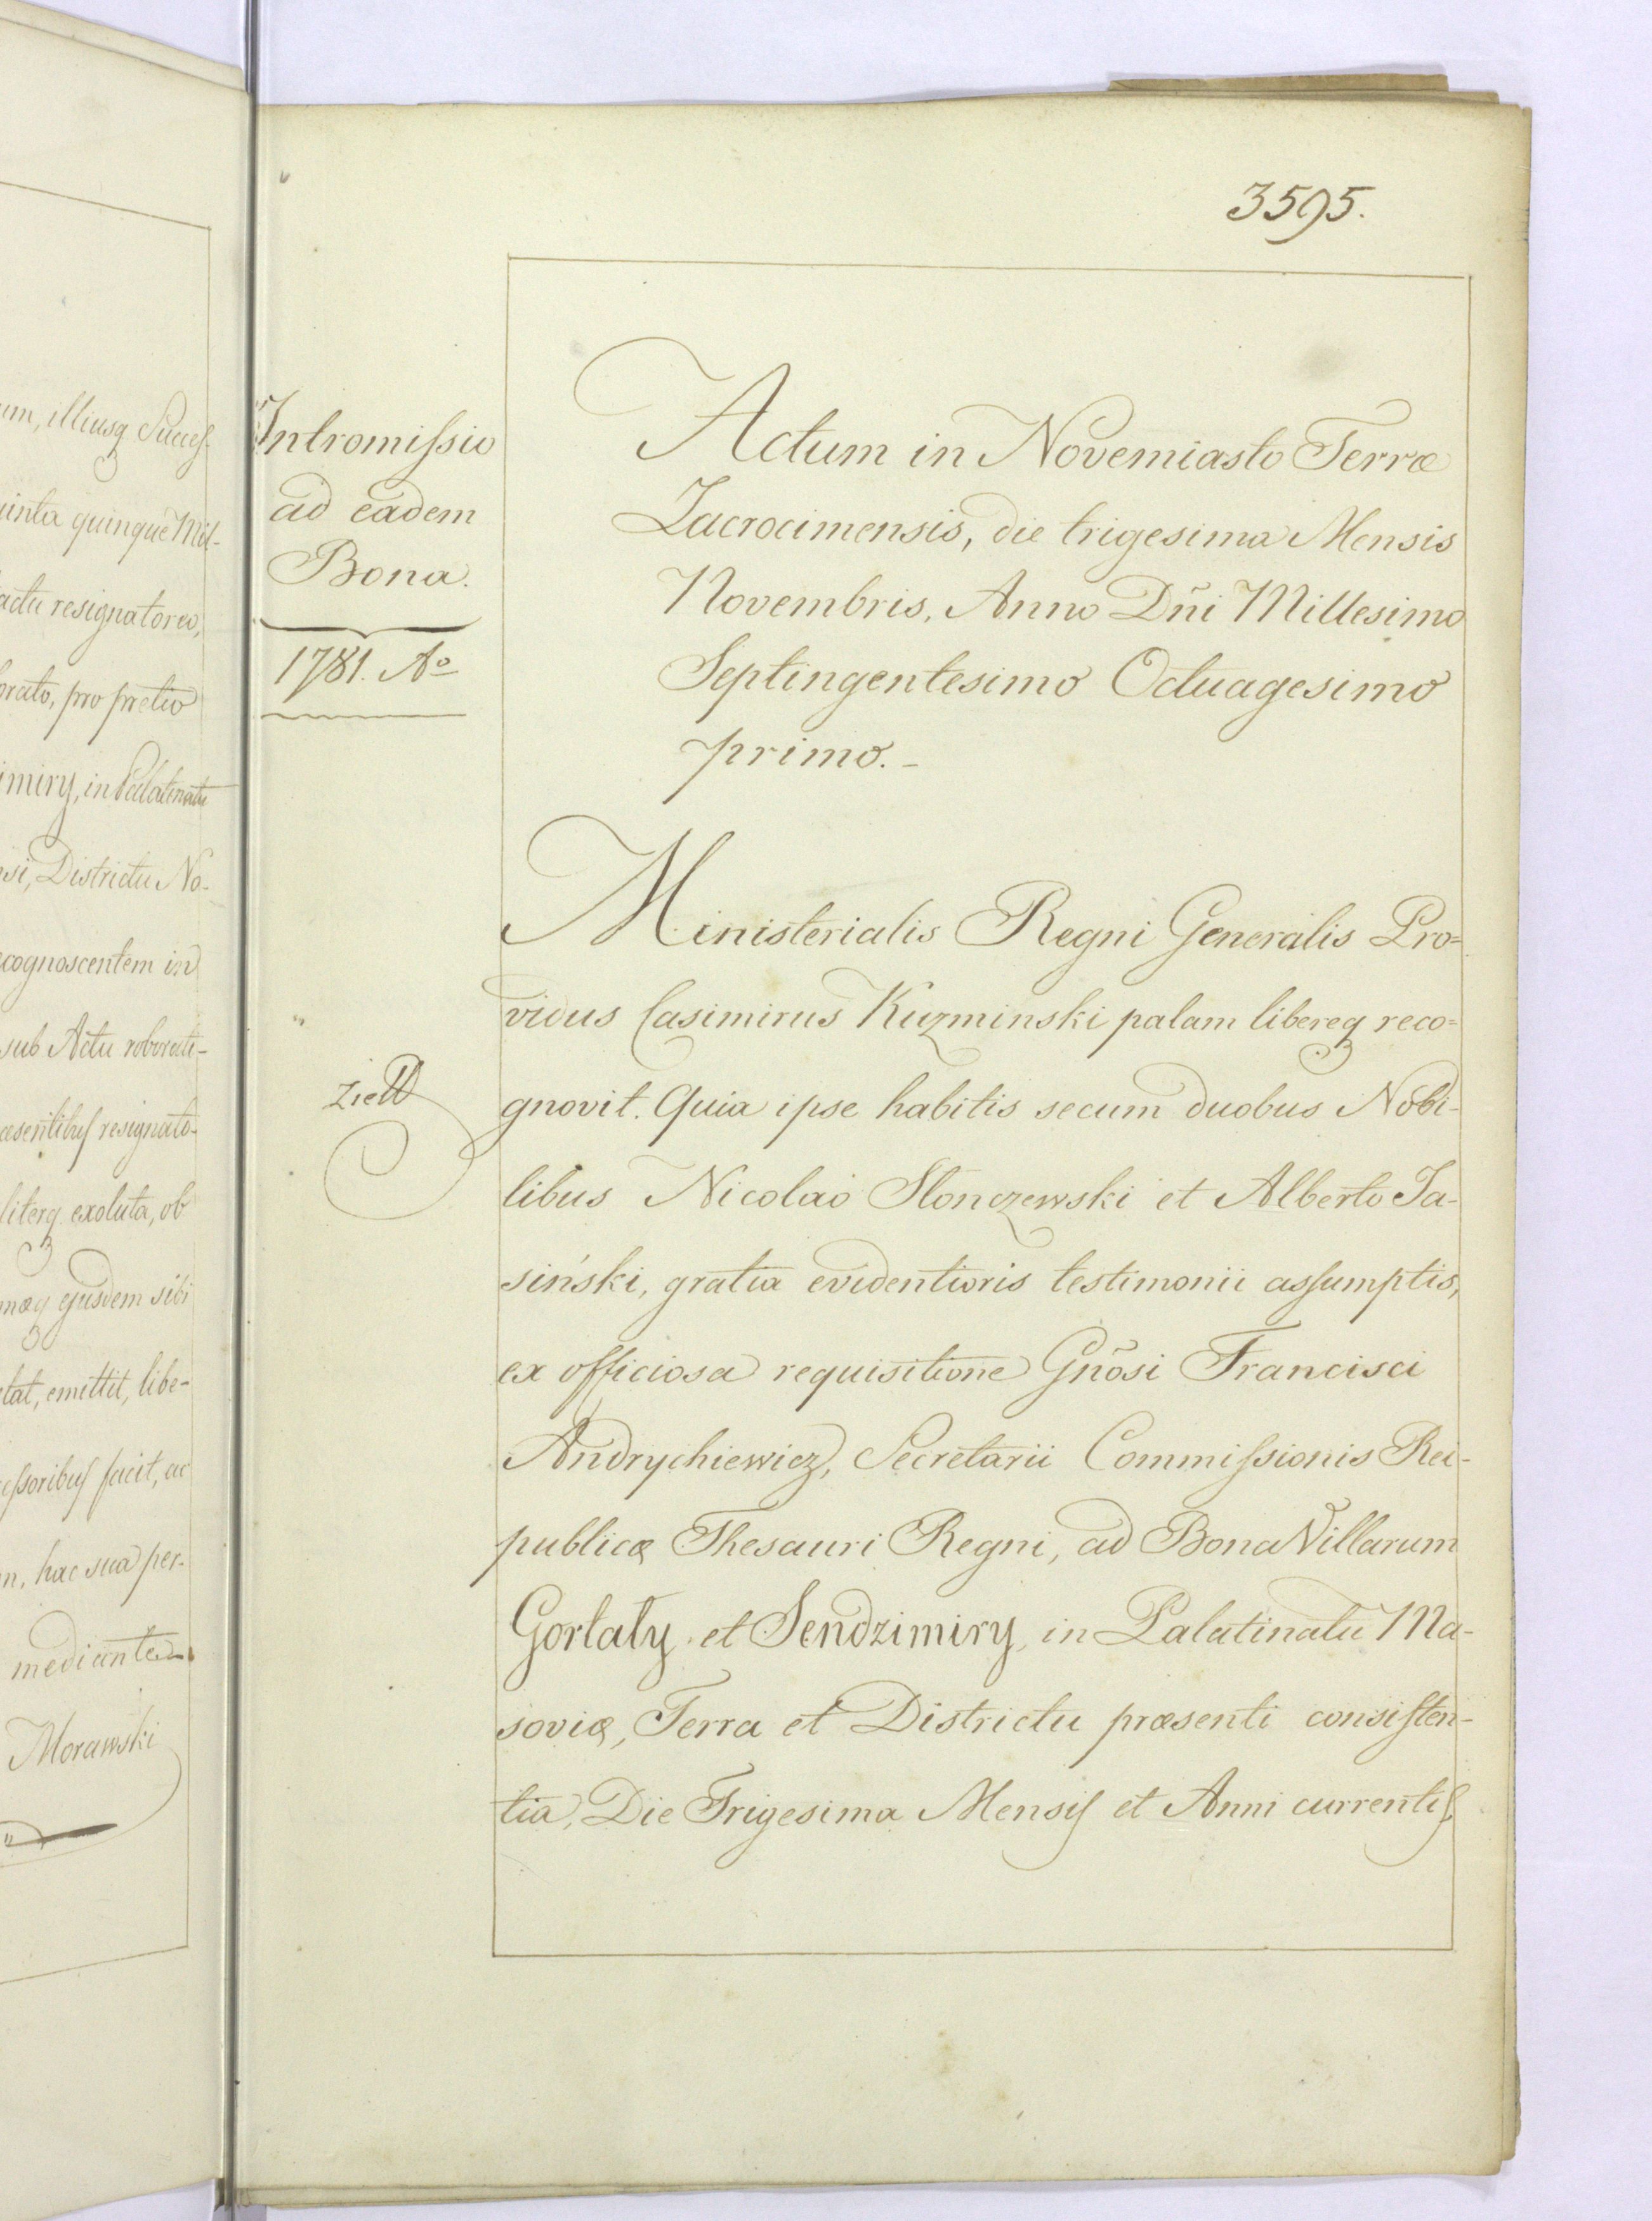 um, illiusq Succes-
uinta quinque Mil-
actu resignatoreo,
orato, pro pretio
imiry, in Palatinatu
nsi, Districtu No-
ecognoscentem in
sub Actu roborati-
æsentibus resignato-
literq exoluta, ob
mæq ejusdem sibi
etat, emittit, libe-
essoribus facit, ac
m, hac sua per-
mediante.
Morawski
3595.
Intromissio
ad eadem
Bona.
1781. Ao
Ziell
Actum in Novemiasto Terræ
Zacrocimensis, die trigesima Mensis
Novembris, Anno Dñi Millesimo
Septingentesimo Octuagesimo
primo.-
Ministerialis Regni Generalis Pro=
vidus Casimirus Kuzminski palam libereq reco=
gnovit. Quia ipse habitis secum duobus Nobi-
libus Nicolao Slonczewski et Alberto Ja-
siński, gratia evidentioris testimonii assumptis,
ex officiosa requisitione Gnõsi Francisci
Andrychiewicz, Secretarii Commissionis Rei-
publicæ Thesauri Regni, ad Bona Villarum
Gorłaty et Sendzimiry, in Palatinatu Ma-
soviæ, Terra et Districtu præsenti consisten-
tia, Die Trigesima Mensis et Anni currentis